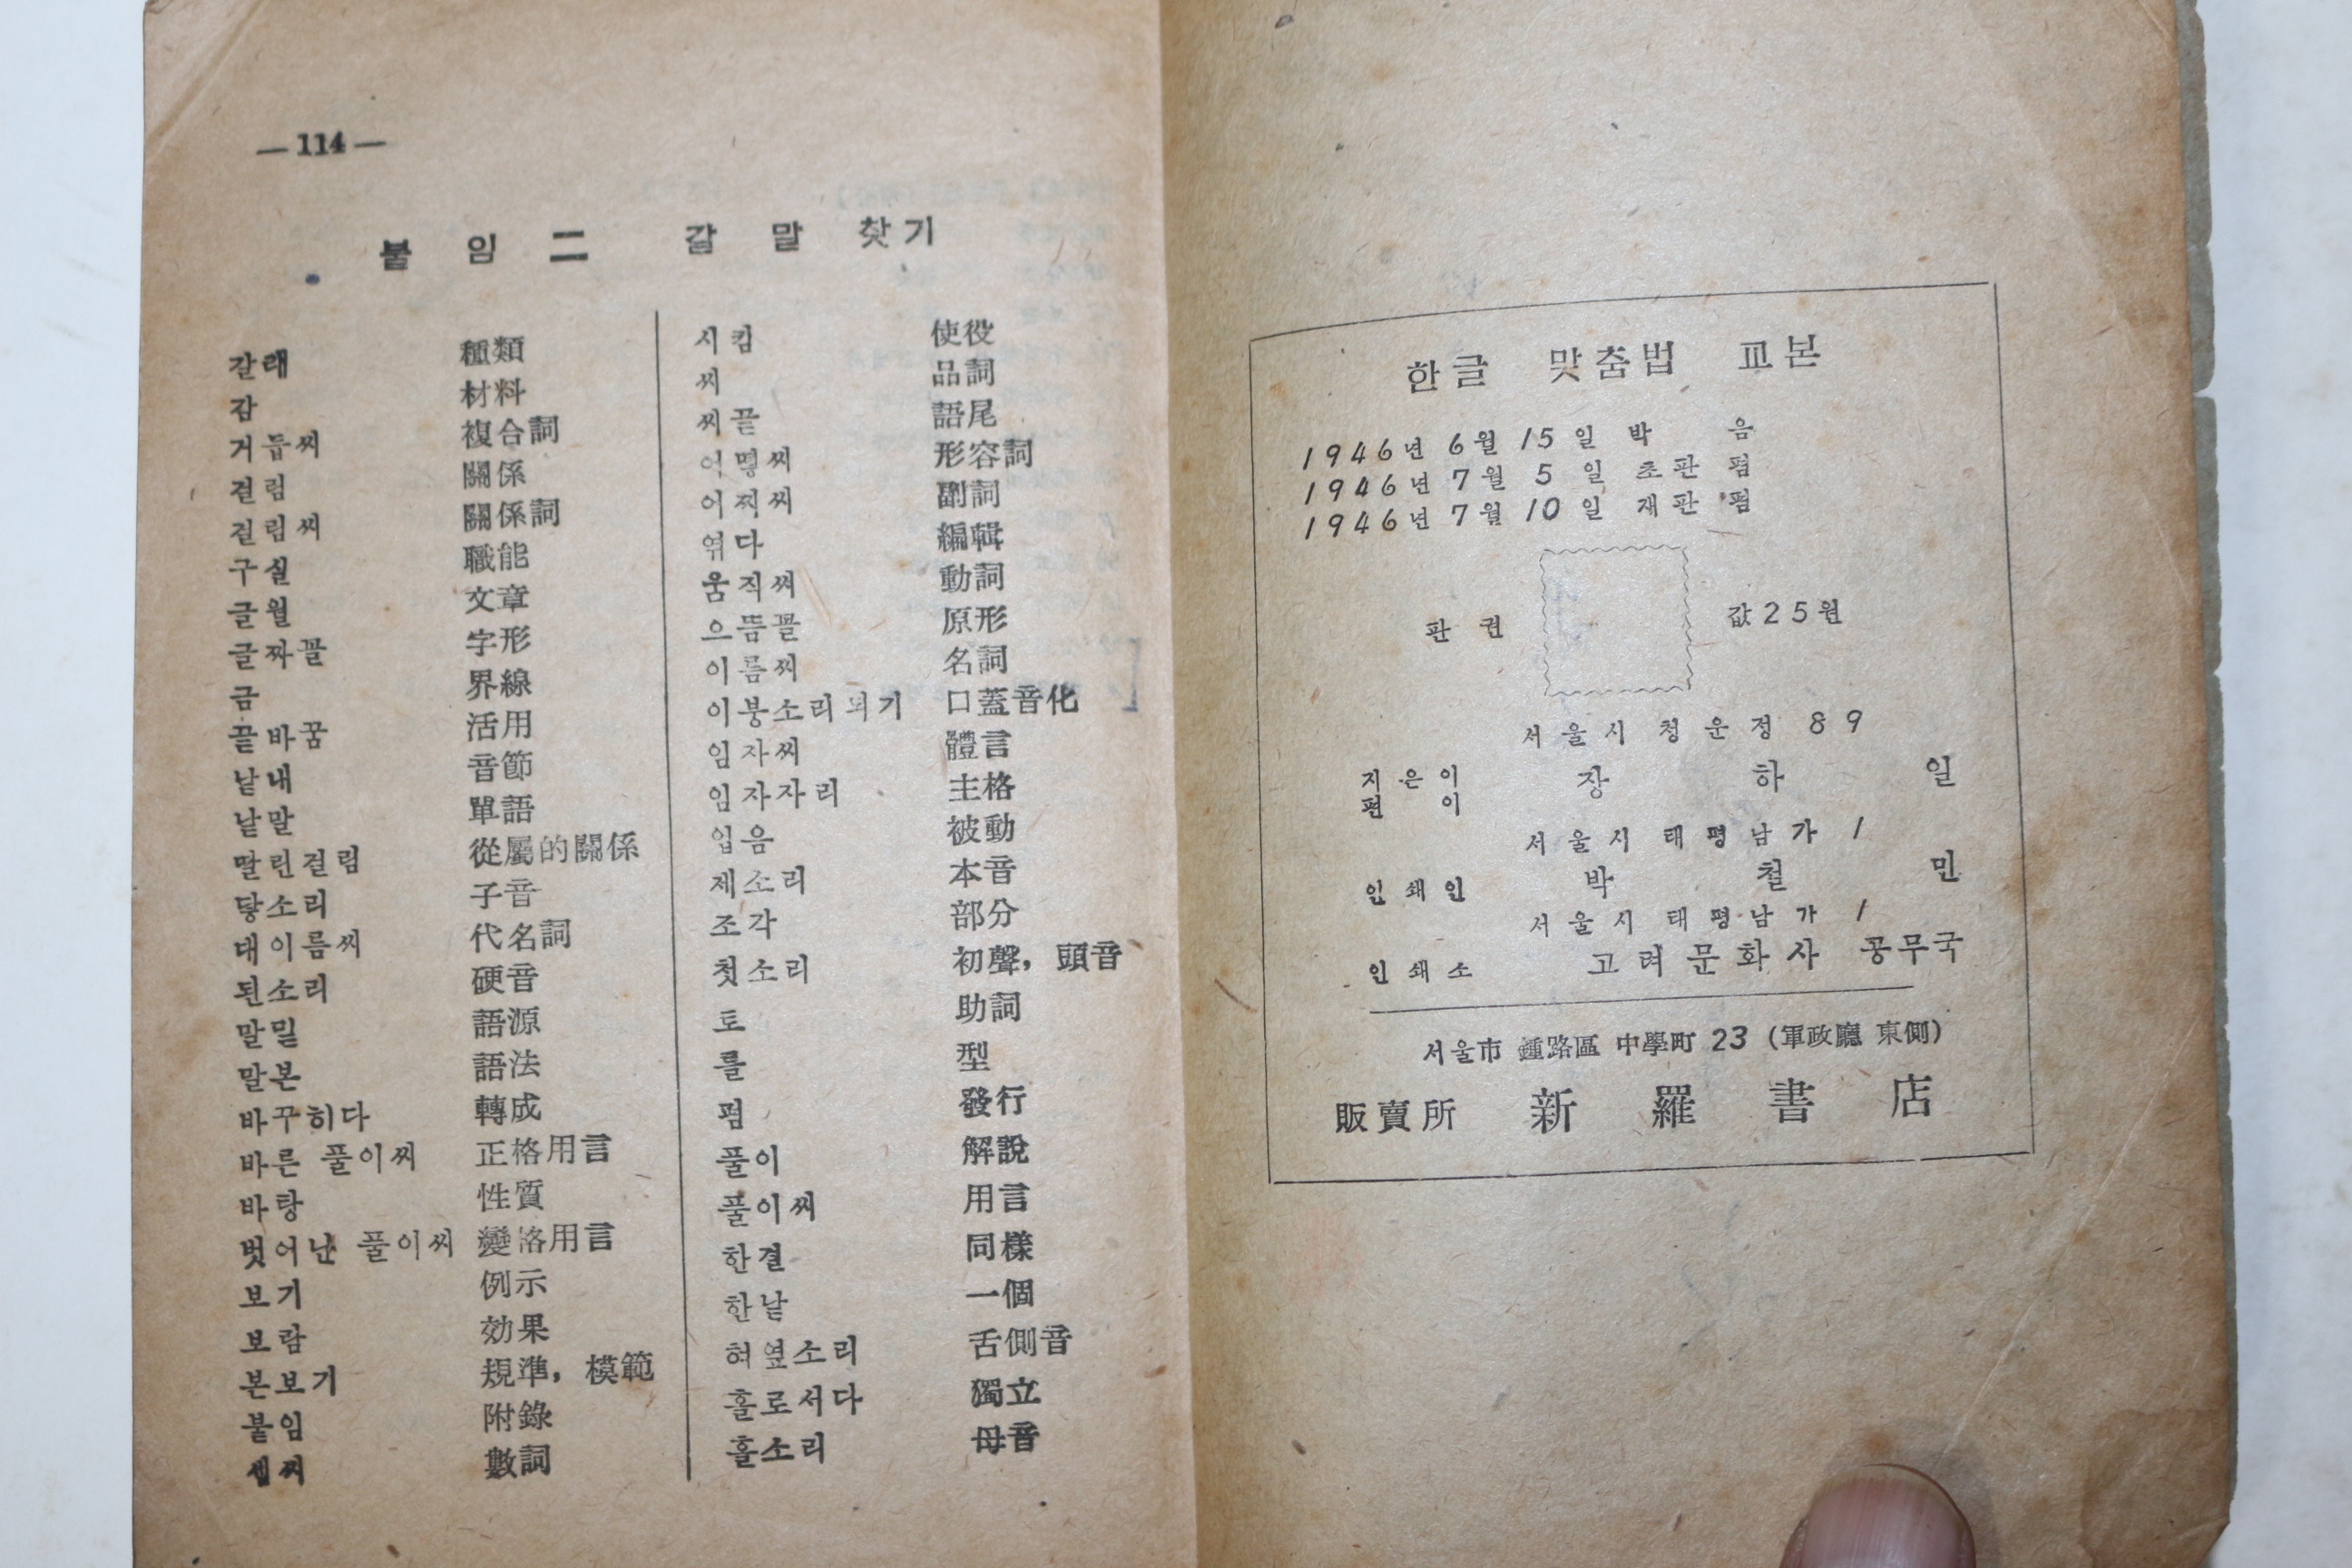 — 114 —
붙 임 二 갈 말 찾기
갈래 種類
감 材料
거듭씨 複合詞
걸림 關係
걸림씨 關係詞
구실 職能
글월 文章
글짜꼴 字形
금 界線
끝바꿈 活用
낱내 音節
낱말 單語
딸린걸림 從屬的關係
닿소리 子音
대이름씨 代名詞
된소리 硬音
말밑 語源
말본 語法
바꾸히다 轉成
바른 풀이씨 正格用言
바탕 性質
벗어난 풀이씨 變格用言
보기 例示
보람 効果
본보기 規準, 模範
붙임 附錄
셈씨 數詞
시킴 使役
씨 品詞
씨끝 語尾
어떻씨 形容詞
어찌씨 副詞
엮다 編輯
움직씨 動詞
으뜸꼴 原形
이름씨 名詞
이붕소리되기 口蓋音化
임자씨 體言
임자자리 主格
입음 被動
제소리 本音
조각 部分
첫소리 初聲, 頭音
토 助詞
틀 型
펌 發行
풀이 解說
풀이씨 用言
한결 同樣
한낱 一個
혀옆소리 舌側音
홀로서다 獨立
홀소리 母音
한글 맞춤법 교본
1946년 6월 15일 박음
1946년 7월 5일 초판 펌
1946년 7월 10일 재판 펌
판권 값25원
서울시 청운정 89
지은이 장하일
편이
서울시 태평남가 1
인쇄인 박철민
서울시 태평남가 1
인쇄소 고려문화사 공무국
서울市 鍾路區 中學町 23 (軍政廳 東側)
販賣所 新羅書店